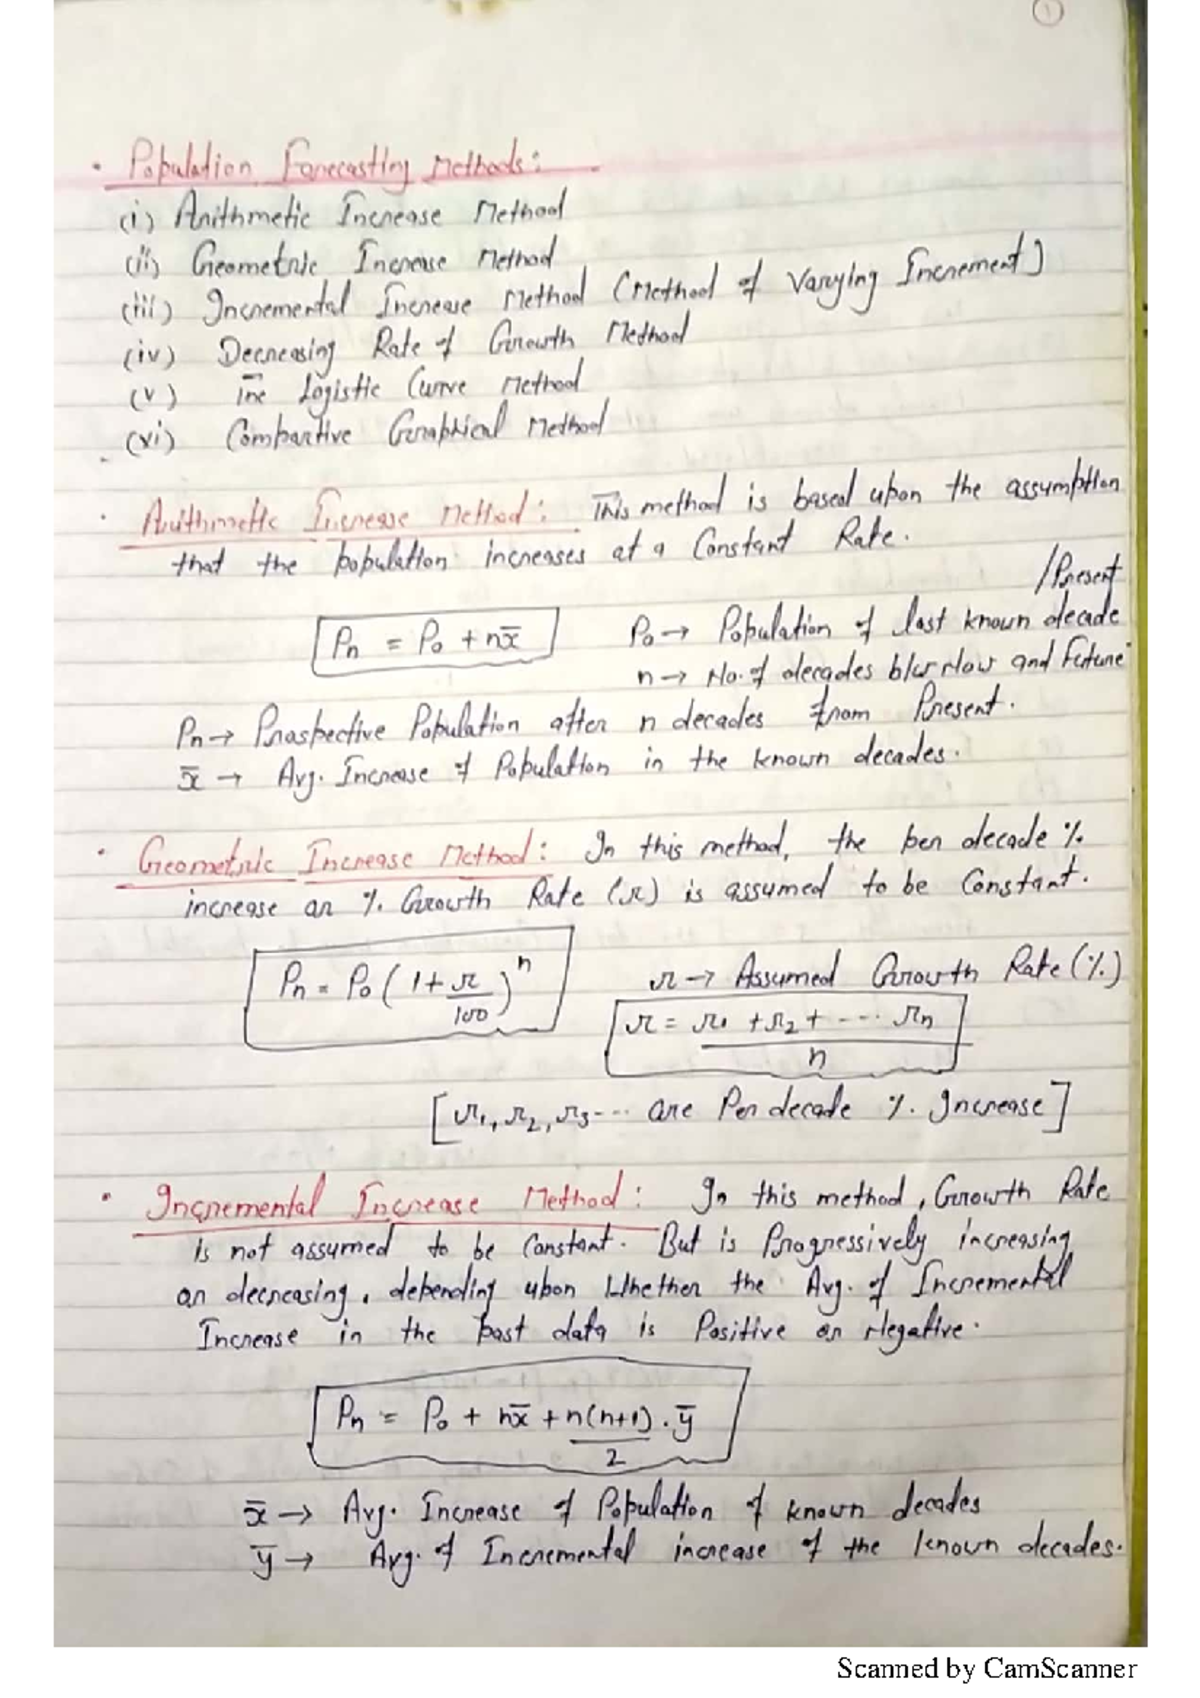 1
• Population Forecasting Methods:
(i) Arithmetic Increase Method
(ii) Geometric Increase Method
(iii) Incremental Increase Method (Method of Varying Increment)
(iv) Decreasing Rate of Growth Method
(v) The Logistic Curve Method
(vi) Compartive Graphical Method
• Arithmetic Increase Method: This method is based upon the assumption
that the population increases at a Constant Rate.
/Present
Pn = P₀ + nx̄ P₀ → Population of last known decade
n → No. of decades b/w Now and Future
Pn → Prospective Population after n decades from Present.
x̄ → Avg. Increase of Population in the known decades.
• Geometric Increase Method: In this method, the per decade %
increase or % Growth Rate (r) is assumed to be Constant.
Pn = P₀ (1 + r/100)ⁿ r → Assumed Growth Rate (%)
r = r₁ + r₂ + --- rn / n
[r₁, r₂, r₃--- are Per decade % Increase]
• Incremental Increase Method: In this method, Growth Rate
is not assumed to be Constant. But is Progressively increasing
or decreasing, depending upon Whether the Avg. of Incremental
Increase in the past data is Positive or Negative.
Pn = P₀ + nx̄ + n(n+1)/2 . ȳ
x̄ → Avg. Increase of Population of known decades
ȳ → Avg. of Incremental increase of the known decades.
Scanned by CamScanner